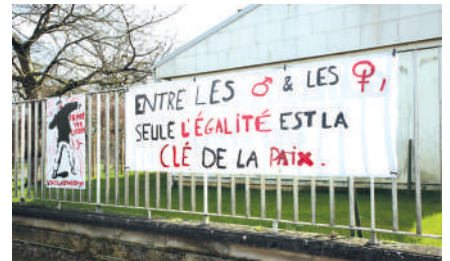 ENTRE LES ♂ & LES ♀,
SEULE L'ÉGALITÉ EST LA
CLÉ DE LA PAIX.